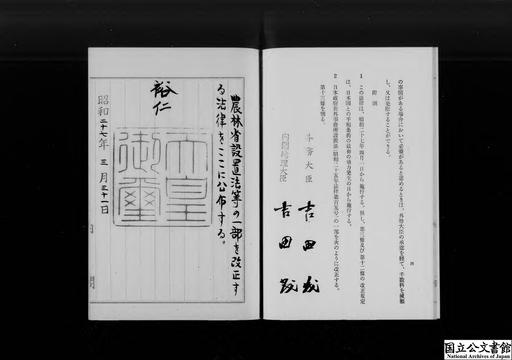 の事情がある場合において必要があると認めるときは、外務大臣の承認を経て、手数料を減額
し、又は免除することができる。
附則
1 この法律は、昭和二十七年四月一日から施行する。但し、第三條及び第十二條の改正規定
は、日本国との平和条約の最初の効力発生の日から施行する。
2 日本政府在外事務所設置法(昭和二十五年法律第百五号)の一部を次のように改正する。
第十三條を削る。
外務大臣 吉田茂
内閣総理大臣 吉田茂
農林省設置法等の一部を改正す
る法律をここに公布する。
裕仁
天皇御璽
昭和二十七年三月三十一日
国立公文書館
National Archives of Japan